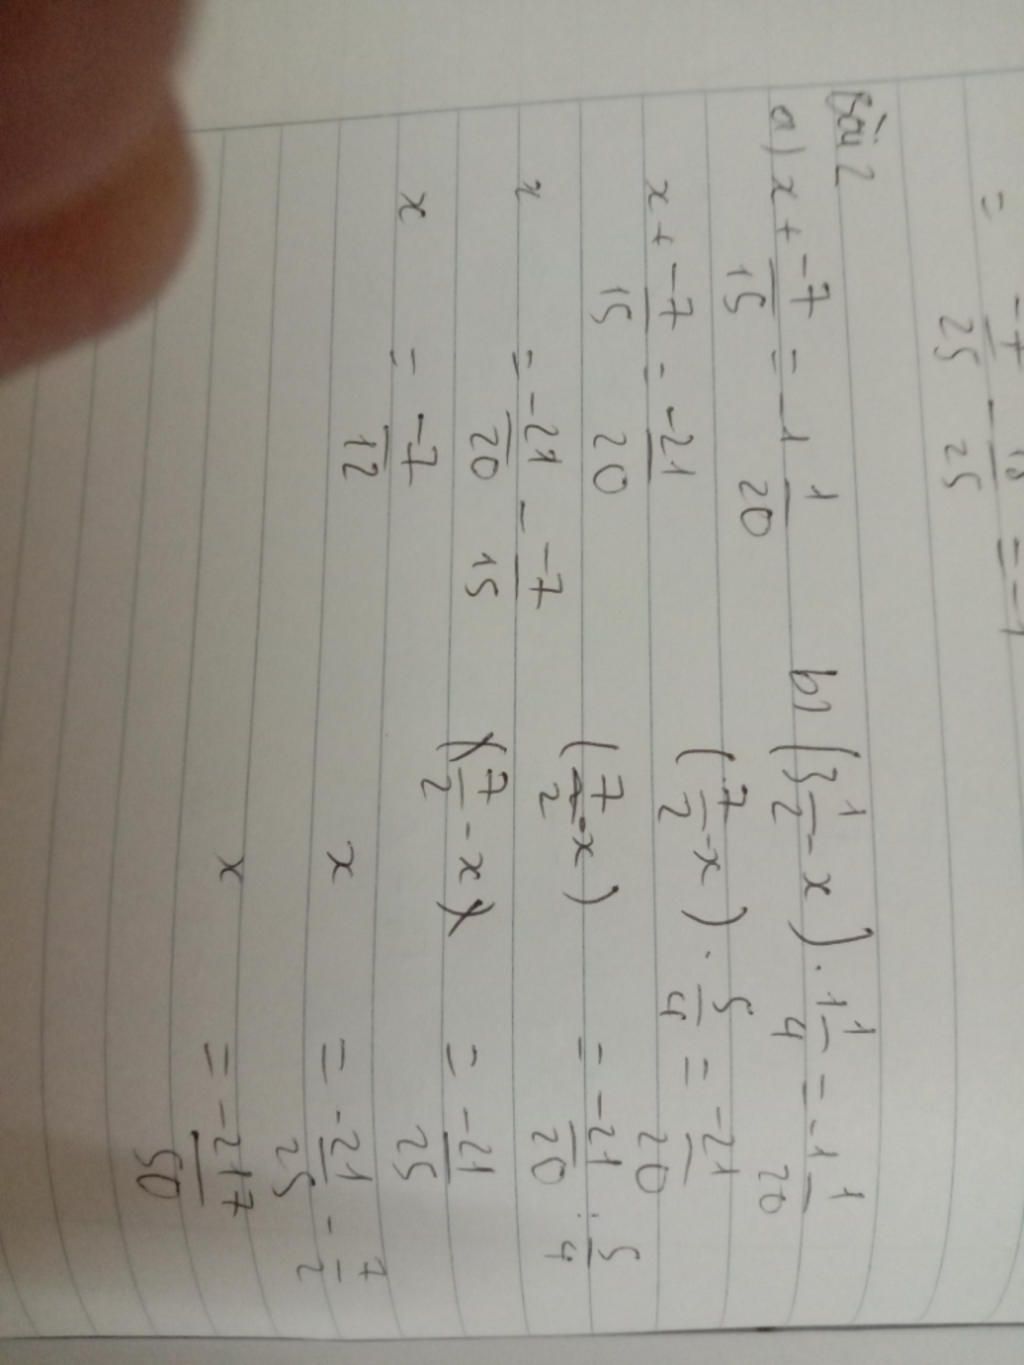 = -7/25 - 18/25 = -1
Bài 2
a) x + -7/15 = -1 1/20
x + -7/15 = -21/20
x = -21/20 - -7/15
x = -7/12
b) (3 1/2 - x) . 1 1/4 = -1 1/20
(7/2 - x) . 5/4 = -21/20
(7/2 - x) = -21/20 : 5/4
(7/2 - x) = -21/25
x = -21/25 - 7/2
x = -217/50